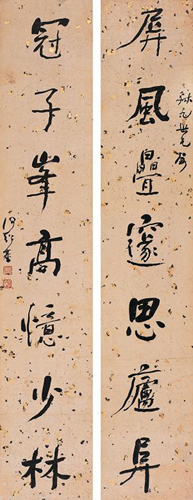 屏風疊邃思廬阜
冠子峯高憶少林